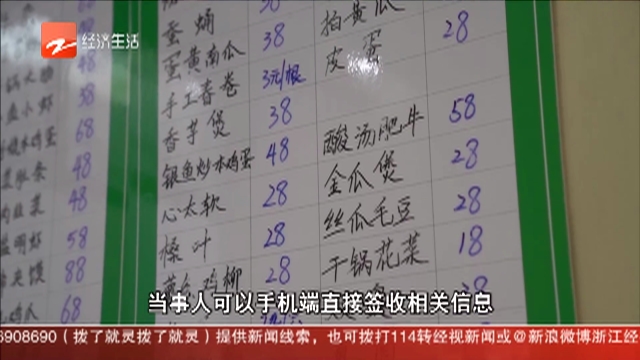 经济生活
小虾 58
本鸡蛋 68
48
48
明虾 58
88
68
蚕蛹
蛋黄南瓜 38
手工春卷 3元/根
香芋煲 38
银鱼炒本鸡蛋 48
心太软 28
叶 28
鸡柳 28
拍黄瓜
皮蛋 28
酸汤肥牛 58
金瓜煲 28
丝瓜毛豆 28
干锅花菜 18
当事人可以手机端直接签收相关信息
6908690（拨了就灵拨了就灵）提供新闻线索，也可拨打114转经视新闻或@新浪微博浙江经